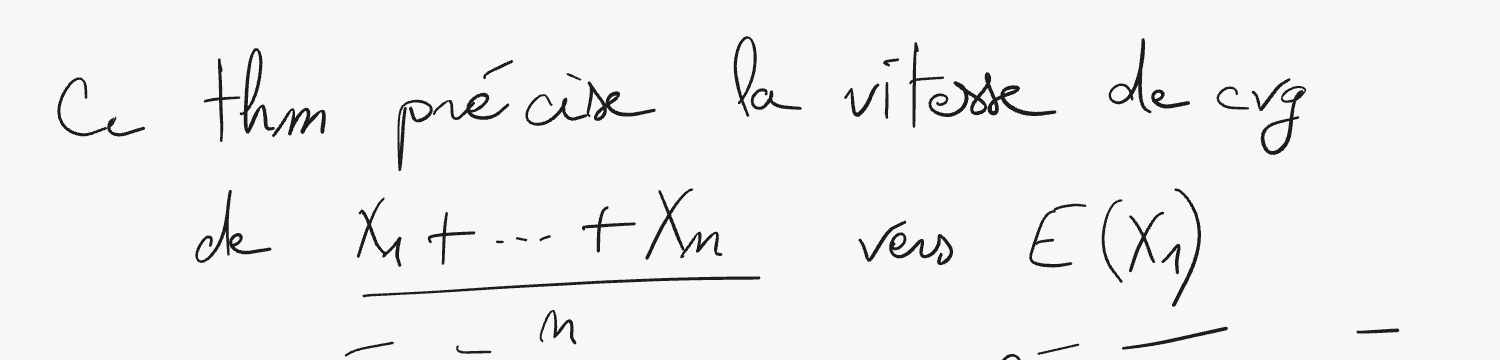 Ce thm précise la vitesse de cvg
de X₁ + ... + Xₙ / n vers E(X₁)